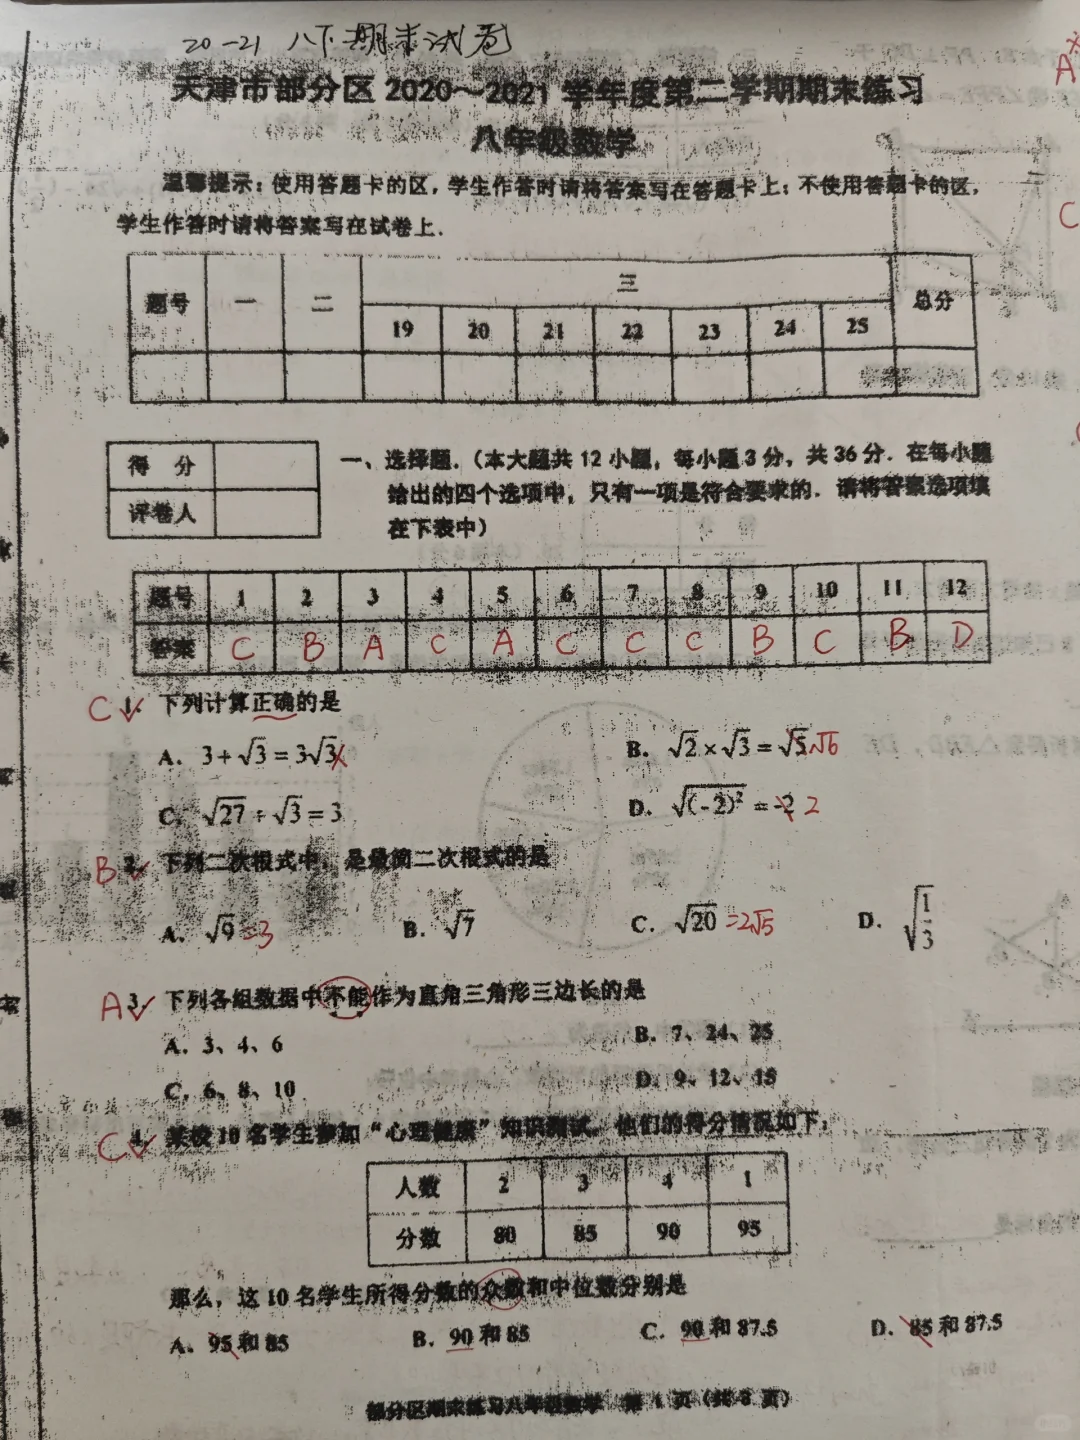 20-21 八下期末试卷
天津市部分区2020～2021学年度第二学期期末练习
八年级数学
温馨提示：使用答题卡的区，学生作答时请将答案写在答题卡上；不使用答题卡的区，
学生作答时请将答案写在试卷上．
题号 一 二 三 总分
19 20 21 22 23 24 25
得 分
评卷人
一、选择题．（本大题共12小题，每小题3分，共36分．在每小题
给出的四个选项中，只有一项是符合要求的．请将答案选项填
在下表中）
题号 1 2 3 4 5 6 7 8 9 10 11 12
答案 C B A C A C C C B C B D
C 1. 下列计算正确的是
A. 3+√3=3√3 B. √2×√3=√5 √6
C. √27÷√3=3 D. √(-2)²=-2 2
B 2. 下列二次根式中，是最简二次根式的是
A. √9 =3 B. √7 C. √20 =2√5 D. √(1/3)
A 3. 下列各组数据中不能作为直角三角形三边长的是
A. 3、4、6 B. 7、24、25
C. 6、8、10 D. 9、12、15
C 4. 某校10名学生参加“心理健康”知识测试，他们的得分情况如下：
人数 2 3 4 1
分数 80 85 90 95
那么，这10名学生所得分数的众数和中位数分别是
A. 95和85 B. 90和85 C. 90和87.5 D. 85和87.5
部分区期末练习八年级数学 第1页（共8页）